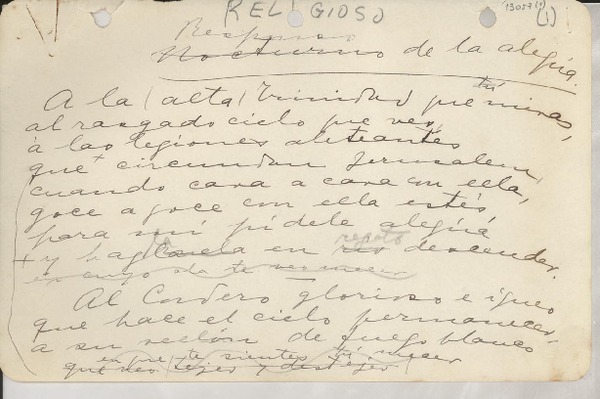 RELIGIOSO
(1)
Responso
Nocturno de la alegría.
A la (alta) Trinidad que tú miras,
al rasgado cielo que ves,
a las legiones aleteantes
que circundan Jerusalem,
cuando cara a cara con ella,
goce a goce con ella estés
para mí pídele alegría
+ y hazla en descender.
en cuyo te
Al Cordero glorioso e ígneo
que hace el cielo permanecer
a su vellón de fuego blanco
en que te sientes mecer
que veo tejer y destejer